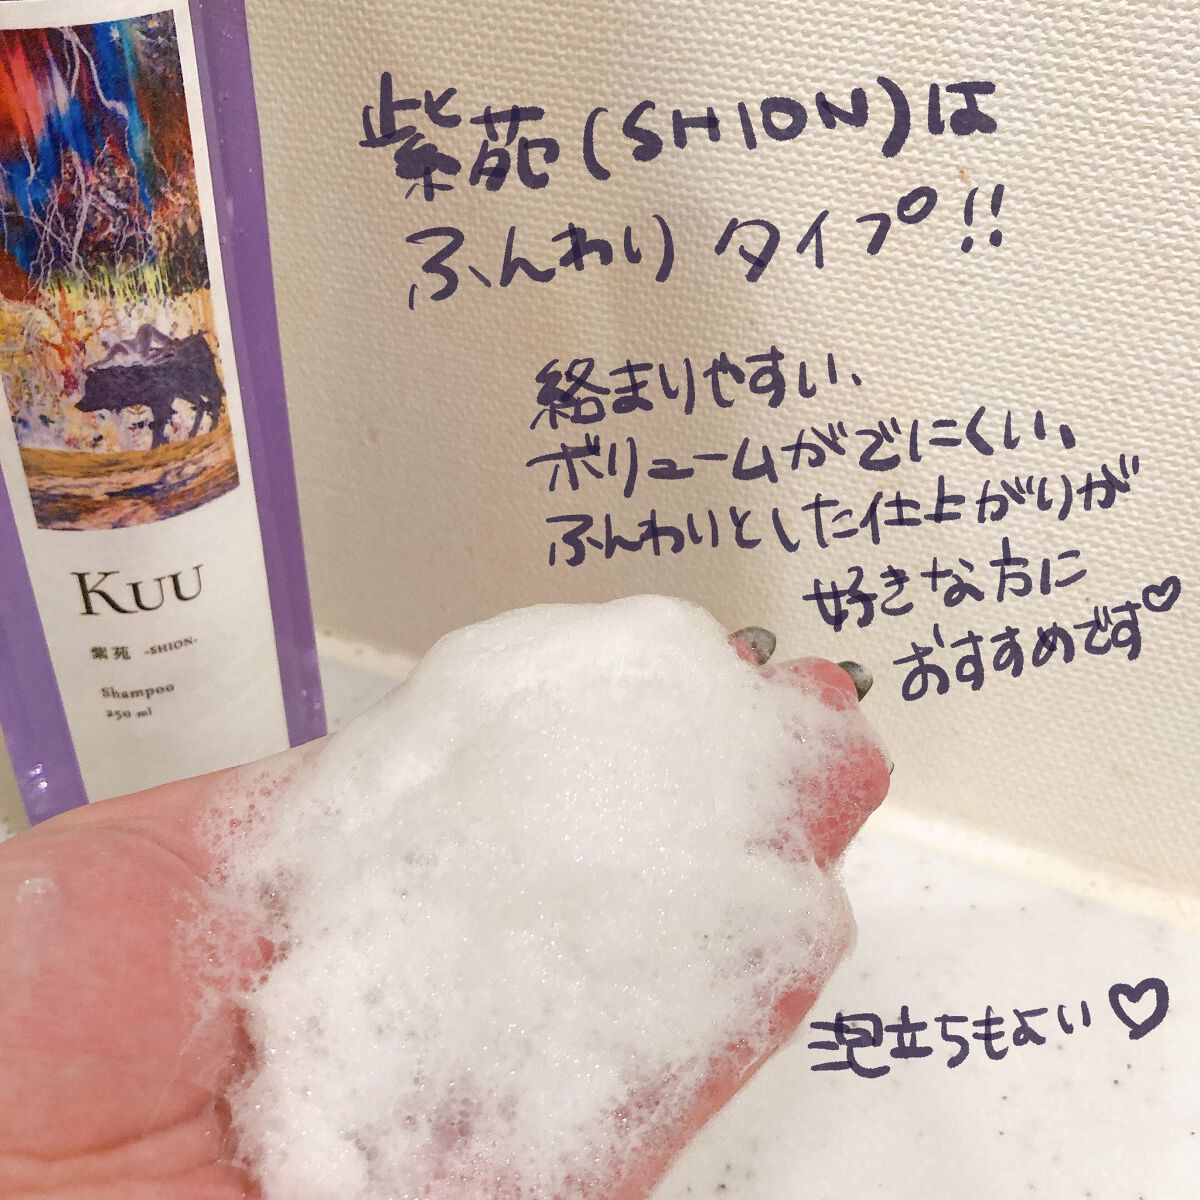 紫苑(SHION)は
ふんわりタイプ!!
絡まりやすい、
ボリュームがでにくい、
ふんわりとした仕上がりが
好きな方に
おすすめです♡
KUU
紫苑 -SHION-
Shampoo
250 ml
泡立ちもよい♡